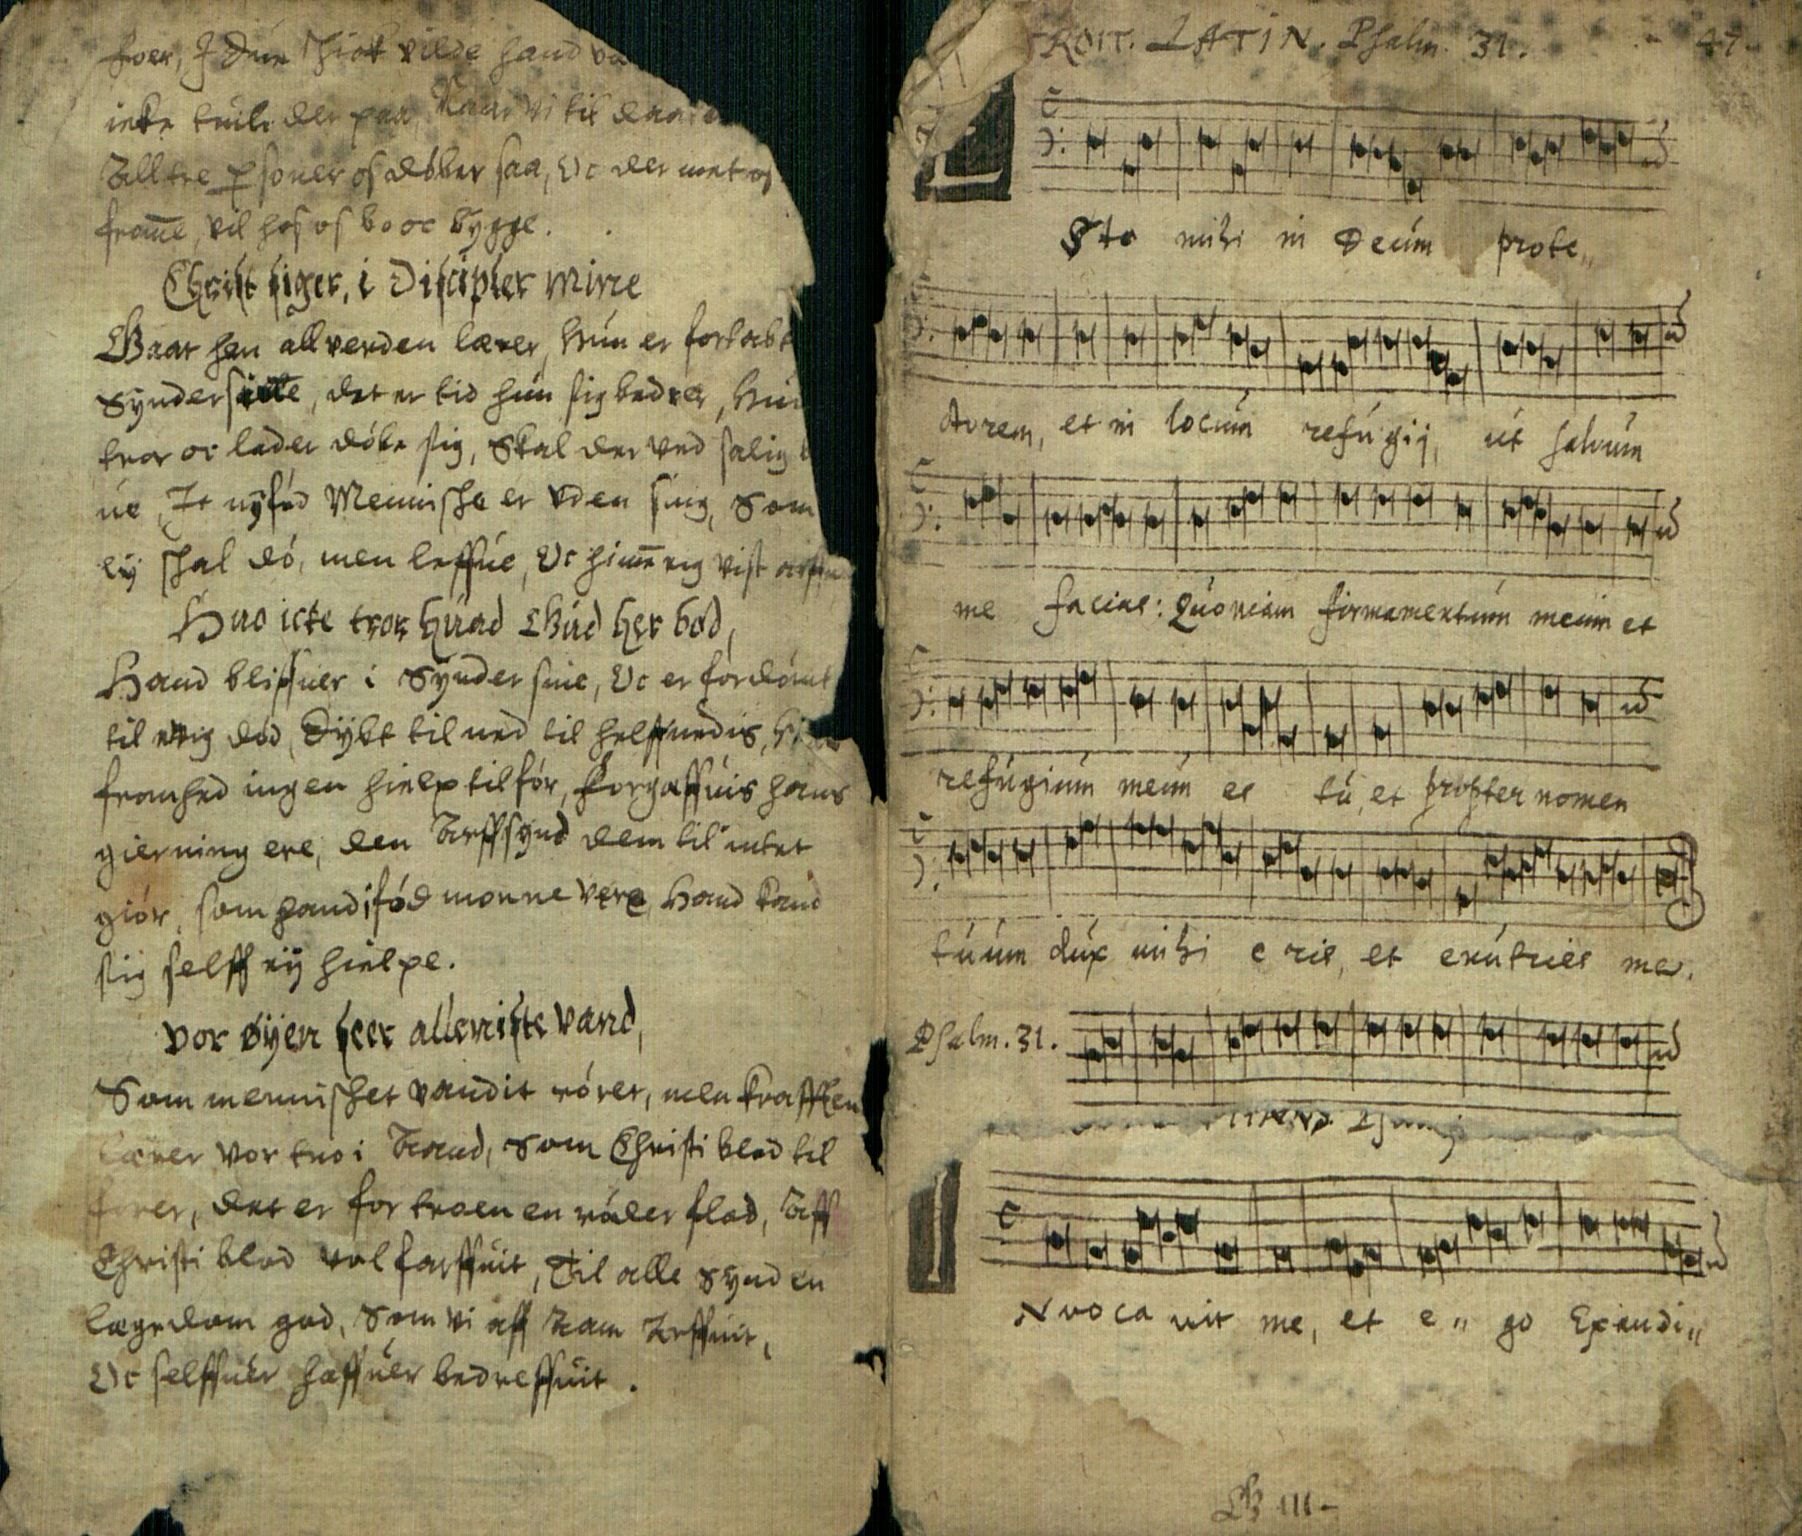 foer, J den skick vilde hand
icke tuile der paa, Naar vi til
All tre personer os døbber saa, Oc der met os
from̅e, vil hos os bo oc bygge.
Christ siger, i Discipler mine
Gaar hen all verden lærer, hun er fortabt
Synder sine, det er tid hun sig bedrer, hui
tror oc lader døbe sig, Skal der ved salig
ue, It nyfød Menniske er uden suig, Som
eij skal dø, men leffue, Oc him̅erig vist arffue
Huo icke tror huad Gud her bød,
Hand bliffuer i Synder sine, Oc er fordømt
til evig død, Dybt til ned til helffuedis,
fromhed ingen hielp tilfør, Forgæffuis hans
gierning ere, den Arffsynd dem til intet
giør, som hand i fød monne vere, Hand kand
sig selff eij hielpe.
Vor øyen seer alleniste vand,
Som mennisket vandit rører, men krafften
lærer vor tro i Aand, Som Christi blod til
fører, det er for troen en røder flod, Aff
Christi blod vel farffuit, Til alle Synden
lægedom god, Som vi aff Adam Arffuit,
Oc selffuer haffuer bedreffuit.
TROIT. LATIN. Psalm. 31. 47.
Sto mihi in Deum prote,,
ctorem, et in locum refugij, ut salvum
me facias: Quoniam firmamentum meum et
refugium meum es tu, et propter nomen
tuum dux mihi eris, et enutries me.
Psalm. 31.
Nvoca vit me, et e,, go Exaudi,,
G III